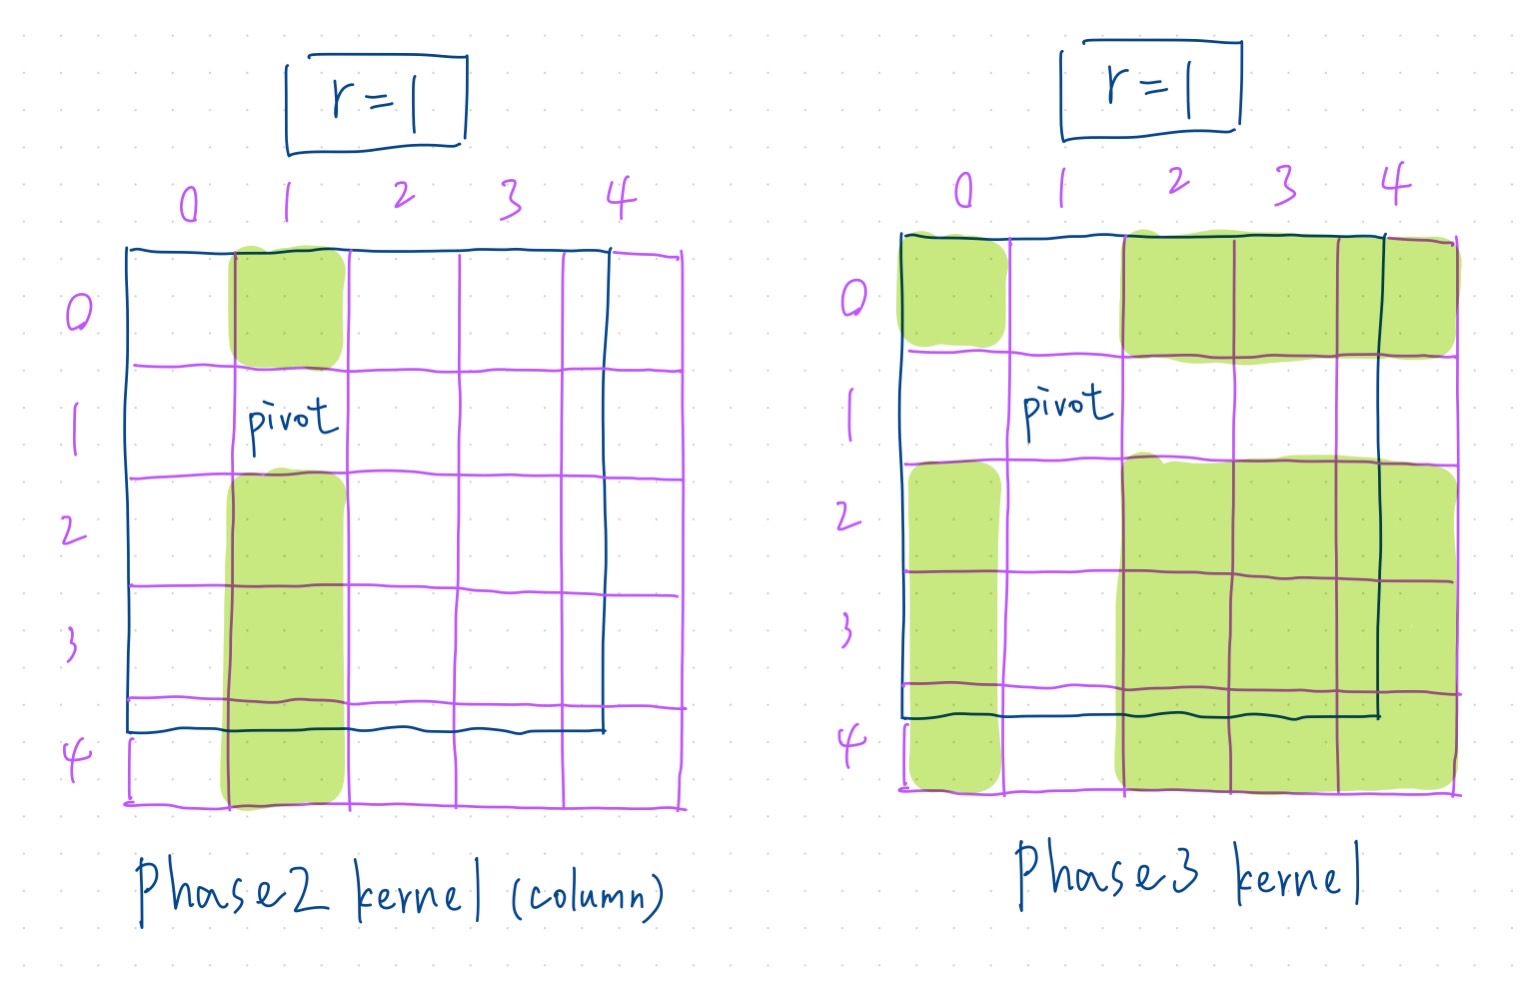 r=1
0 1 2 3 4
0
1 pivot
2
3
4
Phase2 kernel (column)
r=1
0 1 2 3 4
0
1 pivot
2
3
4
Phase3 kernel